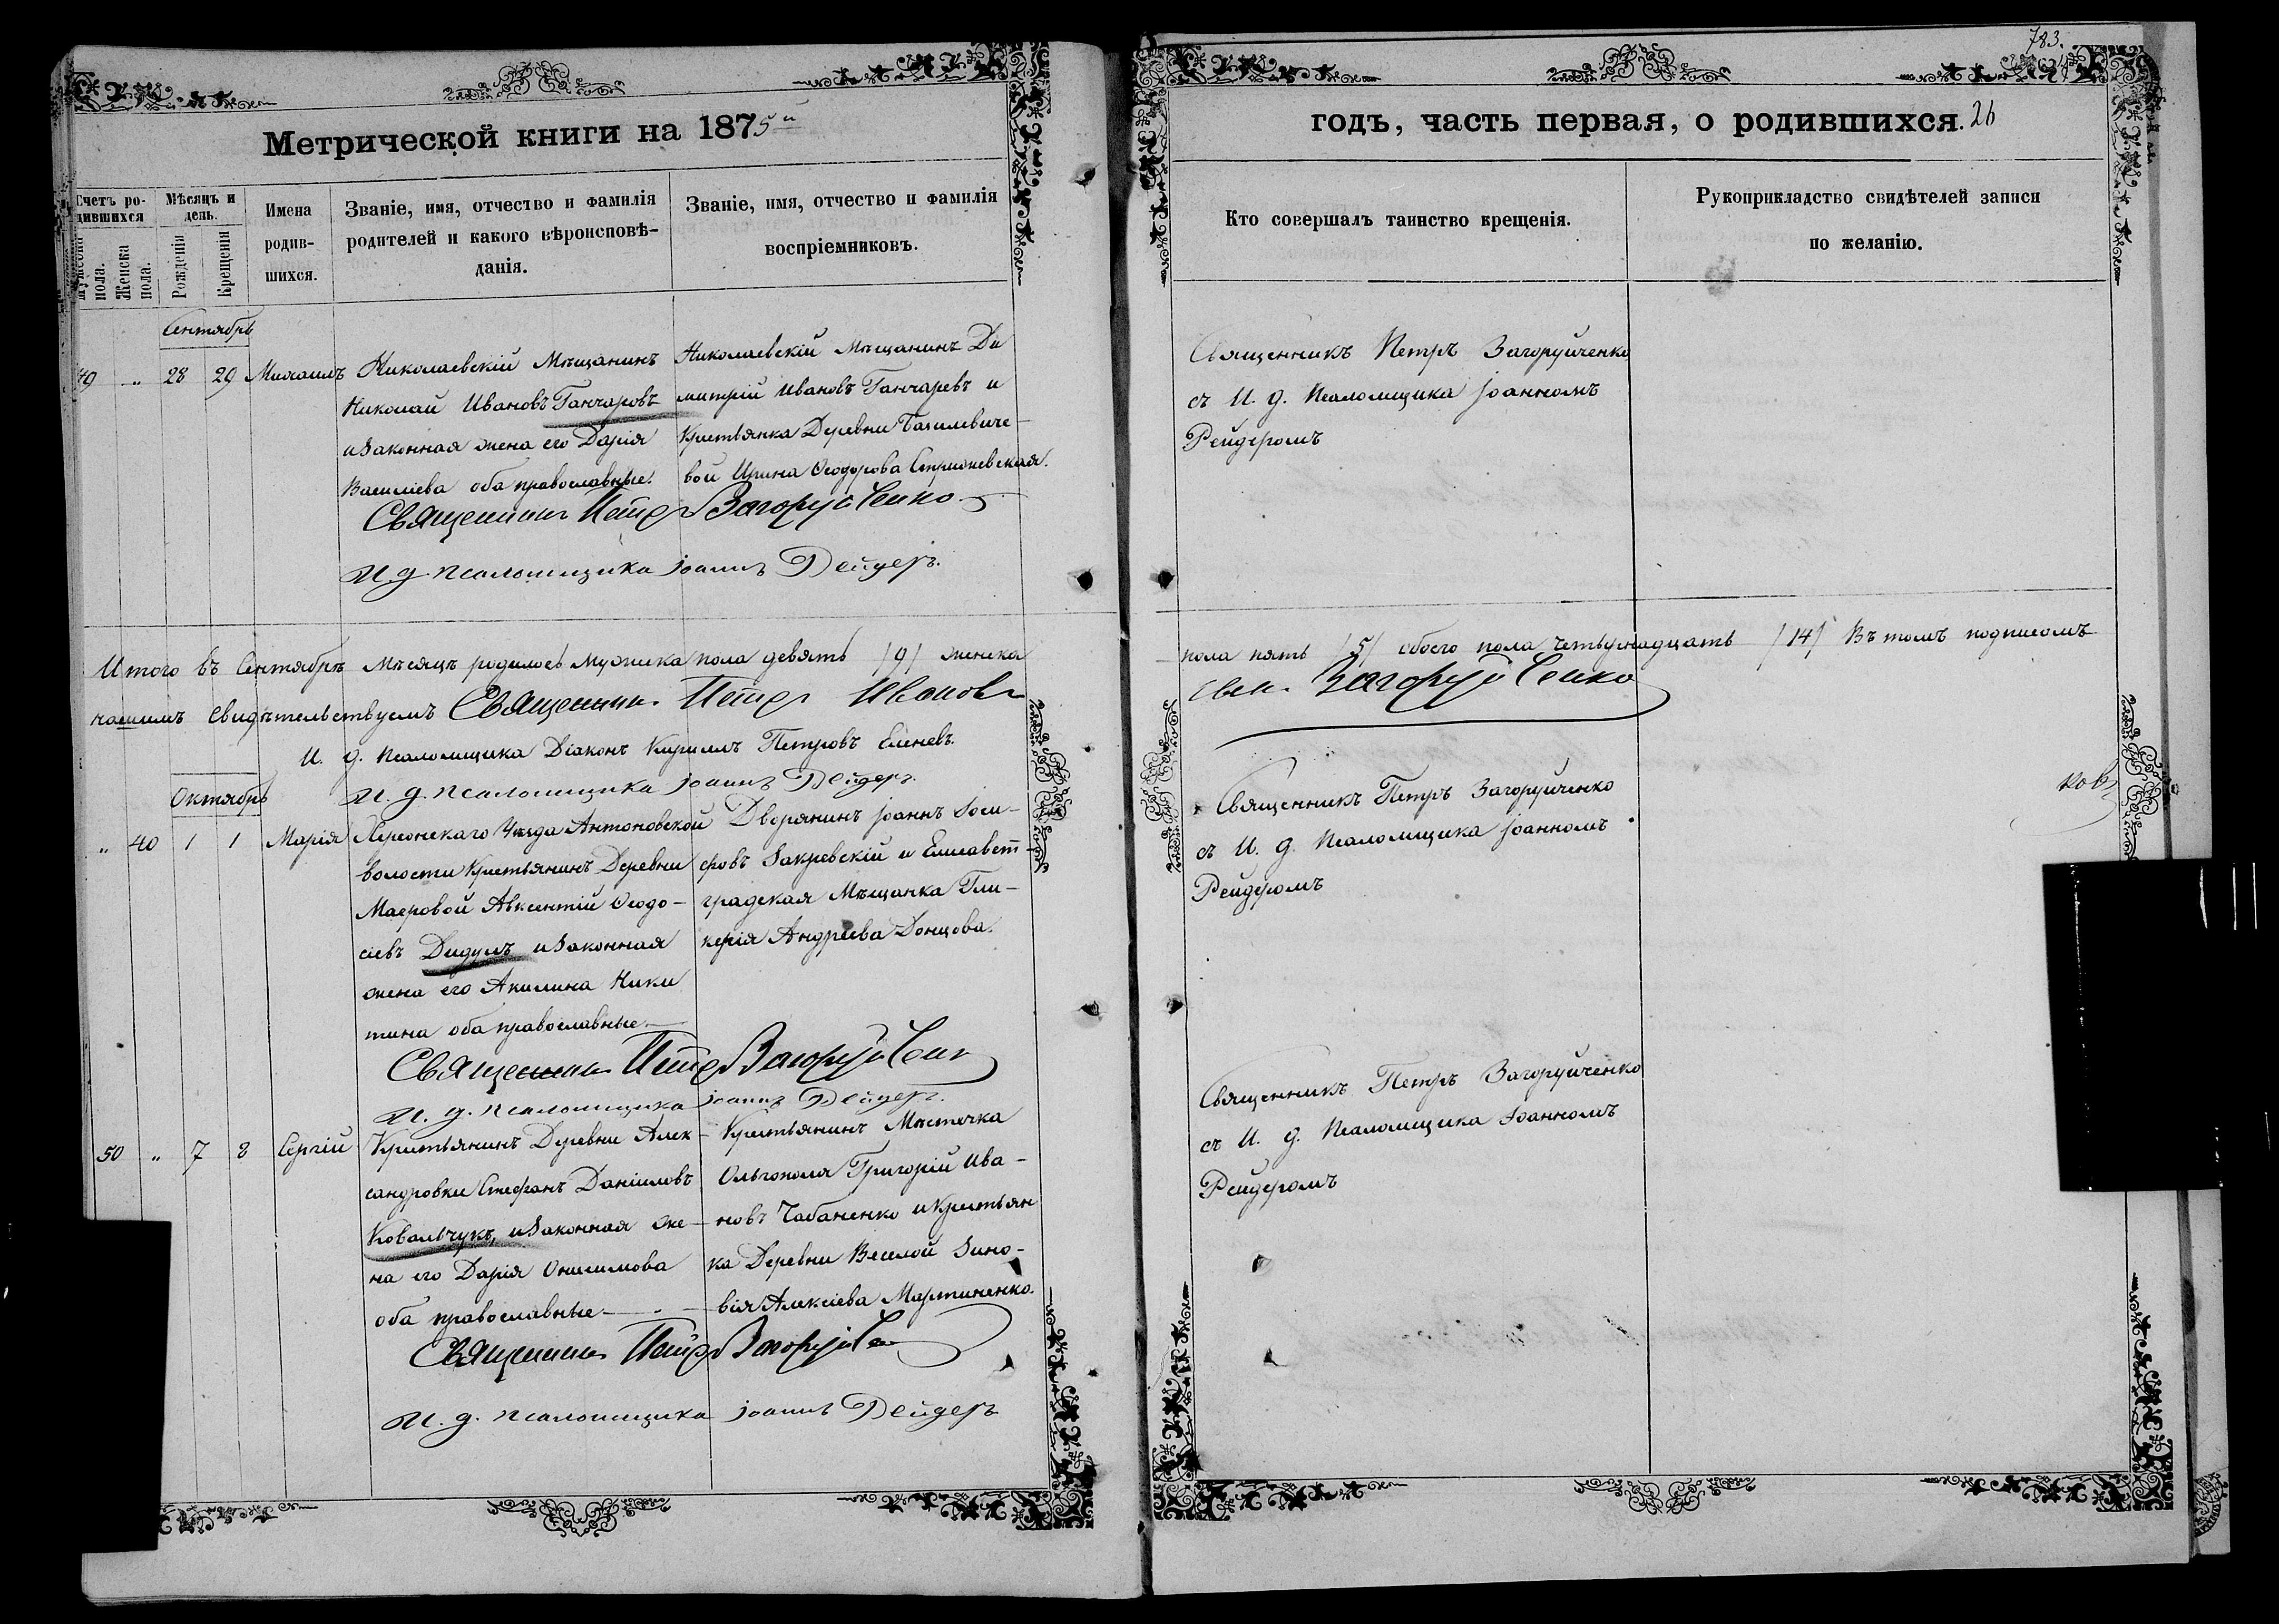 783.
Метрической книги на 1875й
годъ, часть первая, о родившихся. 26
Счетъ родившихся
Мужеска пола.
Женска пола.
Мѣсяцъ и день.
Рожденія
Крещенія
Имена родившихся.
Званіе, имя, отчество и фамилія
родителей и какого вѣроисповѣ-
данія.
Званіе, имя, отчество и фамилія
воспріемниковъ.
Кто совершалъ таинство крещенія.
Рукоприкладство свидѣтелей записи
по желанію.
Сентябрь
49 " 28 29 Михаилъ
Николаевскій Мѣщанинъ
Николай Ивановъ Ганчаровъ
и законная жена его Дарія
Василіева оба православные.
Николаевскій Мѣщанинъ Ди
митрій Ивановъ Ганчаревъ и
Крестьянка Деревни
вой Ирина Ѳеодорова
Священникъ Петръ Загоруйченко
съ И. д. Псаломщика Іоанномъ
Рейдеромъ
Священникъ Петръ Загоруйченко
И. д. псаломщика Іоаннъ Рейдеръ.
Итого въ Сентябрѣ Мѣсяцѣ родилось мужска пола девять /9/ женска
пола пять /5/ обоего пола четырнадцать /14/ Въ томъ подписомъ
нашимъ свидѣтельствуемъ Священникъ Петръ Ивановъ
Загоруйченко
И. д. Псаломщика Діаконъ Кириллъ Петровъ Еленевъ.
И. д. псаломщика Іоаннъ Рейдеръ.
Октябрь
" 40 1 1 Марія
Херсонскаго Уѣзда Антоновской
волости Крестьянинъ Деревни
Маеровой Авксентій Ѳеодо-
сіевъ Дидулъ и законная
жена его Акилина Ники
тина оба православные.
Дворянинъ Іоаннъ Іоси-
фовъ Закревскій и Елисавет
градская Мѣщанка Гли-
керія Андреева Донцова.
Священникъ Петръ Загоруйченко
съ И. д. Псаломщика Іоанномъ
Рейдеромъ
ковъ
Священникъ Петръ Загоруйченко
И. д. псаломщика Іоаннъ Рейдеръ.
50 " 7 8 Сергій
Крестьянинъ Деревни Алек-
сандровки Стефанъ Даніиловъ
Ковальчукъ, и законная же-
на его Дарія Онисимова
оба православные.
Крестьянинъ Мѣстечка
Ольгополя Григорій Ива-
новъ Чабаненко и Крестьян
ка Деревни Веселой Зино-
вія Алексіева Мартиненко.
Священникъ Петръ Загоруйченко
съ И. д. Псаломщика Іоанномъ
Рейдеромъ
Священникъ Петръ Загоруйченко
И. д. псаломщика Іоаннъ Рейдеръ